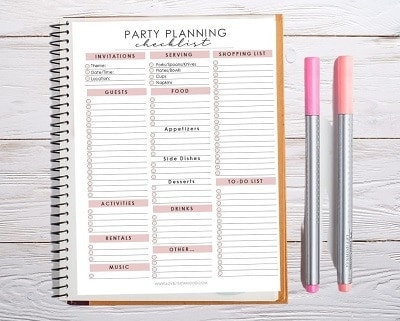 PARTY PLANNING
checklist
INVITATIONS
Theme:
Date/Time:
Location:
GUESTS
ACTIVITIES
RENTALS
MUSIC
SERVING
Forks/Spoons/Knives
Plates/Bowls
Cups
Napkins
FOOD
Appetizers
Side Dishes
Desserts
DRINKS
OTHER...
SHOPPING LIST
TO-DO LIST